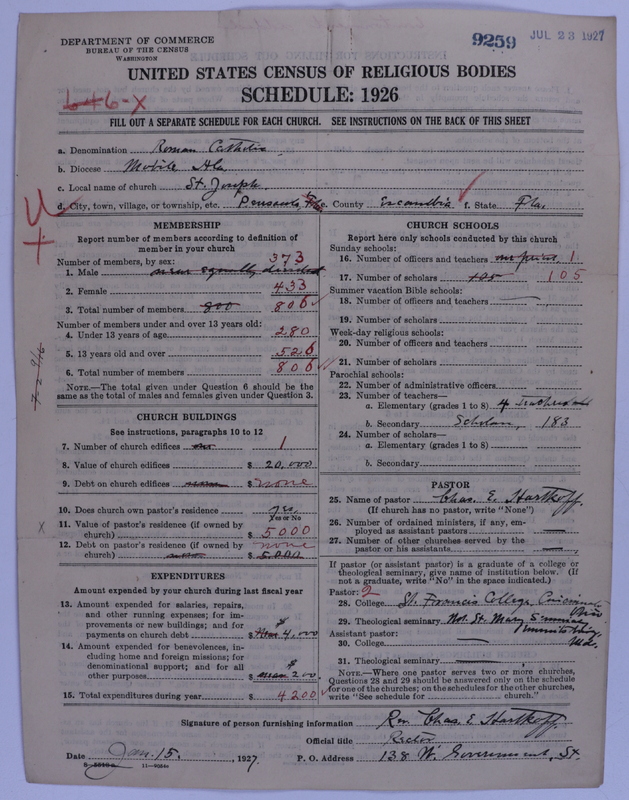 9259
JUL 23 1927
DEPARTMENT OF COMMERCE
BUREAU OF THE CENSUS
WASHINGTON
UNITED STATES CENSUS OF RELIGIOUS BODIES
SCHEDULE: 1926
6-46-X
FILL OUT A SEPARATE SCHEDULE FOR EACH CHURCH. SEE INSTRUCTIONS ON THE BACK OF THIS SHEET
a. Denomination Roman Catholic
b. Diocese Mobile Ala
c. Local name of church St. Joseph
d. City, town, village, or township, etc. Pensacola, Fla e. County Escambia f. State Fla.
MEMBERSHIP
Report number of members according to definition of member in your church
Number of members, by sex:
1. Male near equally divided 373
2. Female 433
3. Total number of members 800 806
Number of members under and over 13 years old:
4. Under 13 years of age 280
5. 13 years old and over 526
6. Total number of members 806
NOTE.—The total given under Question 6 should be the same as the total of males and females given under Question 3.
CHURCH BUILDINGS
See instructions, paragraphs 10 to 12
7. Number of church edifices one 1
8. Value of church edifices $ 20,000
9. Debt on church edifices $ none
10. Does church own pastor's residence yes
Yes or No
11. Value of pastor's residence (if owned by church) $ 5000
12. Debt on pastor's residence (if owned by church) none $ 5.000
EXPENDITURES
Amount expended by your church during last fiscal year
13. Amount expended for salaries, repairs, and other running expenses; for improvements or new buildings; and for payments on church debt $ 4,000
14. Amount expended for benevolences, including home and foreign missions; for denominational support; and for all other purposes $ 200.
15. Total expenditures during year $ 4200
CHURCH SCHOOLS
Report here only schools conducted by this church
Sunday schools:
16. Number of officers and teachers one priest 1
17. Number of scholars 105 105
Summer vacation Bible schools:
18. Number of officers and teachers
19. Number of scholars
Week-day religious schools:
20. Number of officers and teachers
21. Number of scholars
Parochial schools:
22. Number of administrative officers
23. Number of teachers—
a. Elementary (grades 1 to 8) 4 Teachers
b. Secondary Scholars, 183
24. Number of scholars—
a. Elementary (grades 1 to 8)
b. Secondary
PASTOR
25. Name of pastor Chas. E. Hartkoff.
(If church has no pastor, write "None")
26. Number of ordained ministers, if any, employed as assistant pastors
27. Number of other churches served by the pastor or his assistants
If pastor (or assistant pastor) is a graduate of a college or theological seminary, give name of institution below. (If not a graduate, write "No" in the space indicated.)
Pastor: 2
28. College St. Francis College, Cincinnati Ohio
29. Theological seminary Mt. St. Mary Seminary Emmitsburg Md.
Assistant pastor:
30. College
31. Theological seminary
NOTE.—Where one pastor serves two or more churches, Questions 28 and 29 should be answered only on the schedule for one of the churches; on the schedules for the other churches, write "See schedule for church."
Signature of person furnishing information Rev. Chas. E. Hartkoff
Official title Rector
Date Jan. 15, 1927. P. O. Address 138 W. Government, St.